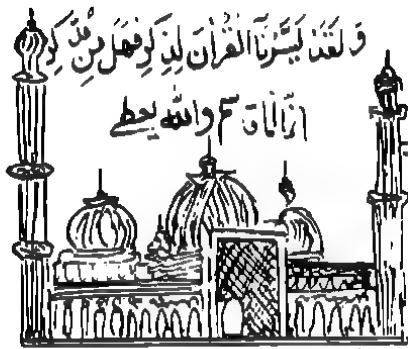 وَلَقَدْ يَسَّرْنَا الْقُرْآنَ لِلذِّكْرِ فَهَلْ مِنْ مُدَّكِرٍ
إنما انا قاسم والله يعطى